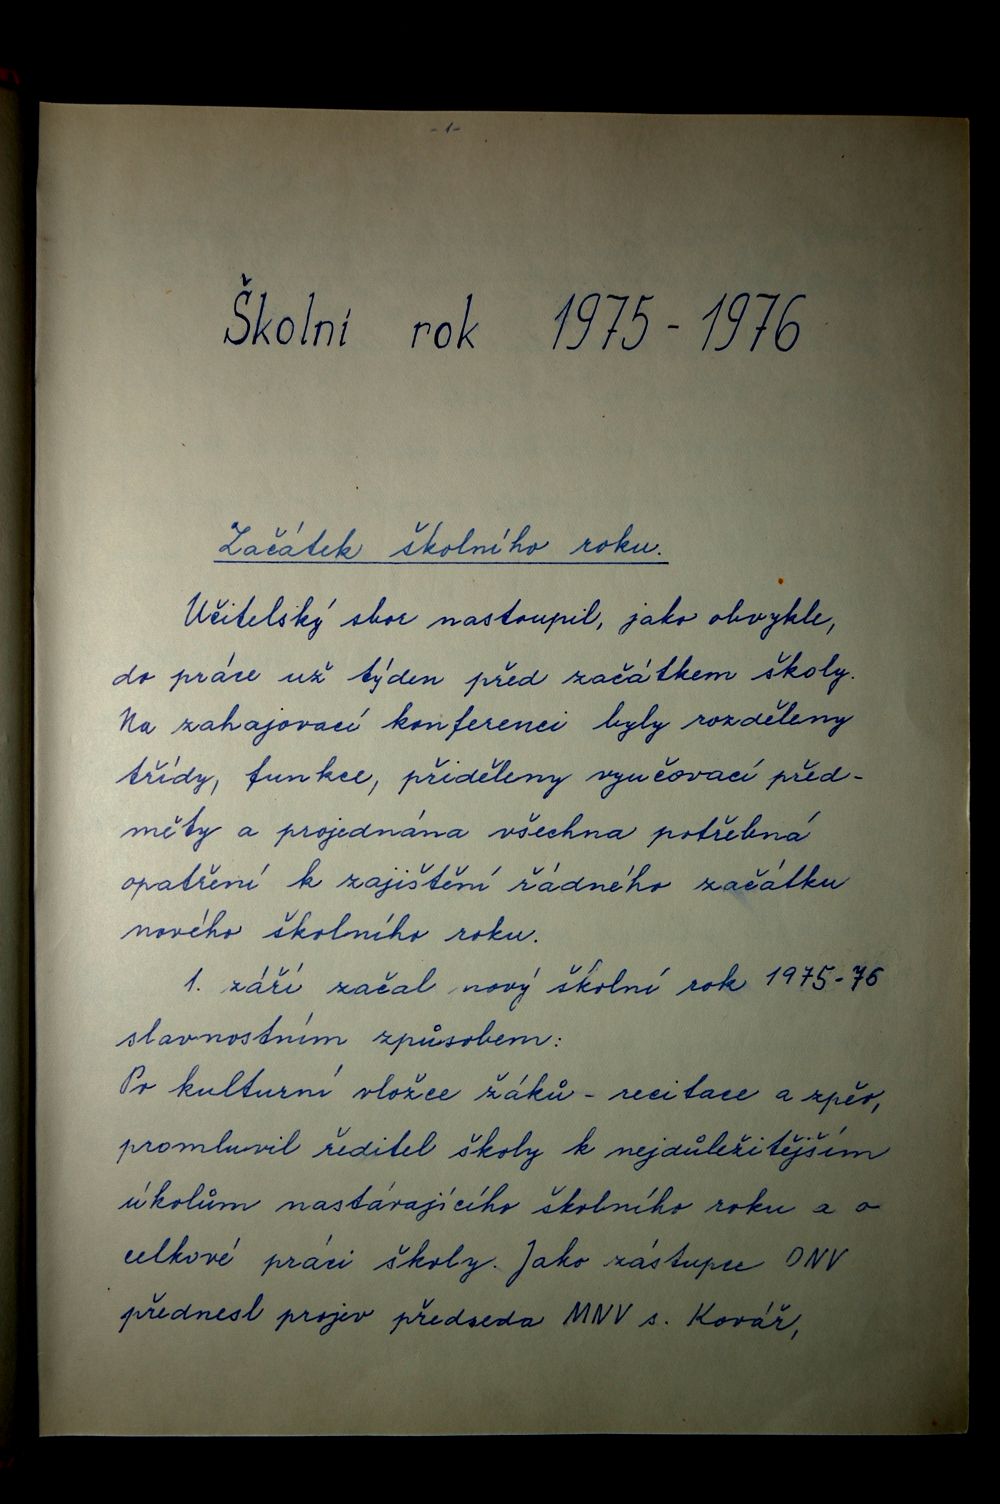 -1-
Školní rok 1975-1976
Začátek školního roku.
Učitelský sbor nastoupil, jako obvykle,
do práce už týden před začátkem školy.
Na zahajovací konferenci byly rozděleny
třídy, funkce, přiděleny vyučovací před-
měty a projednána všechna potřebná
opatření k zajištění řádného začátku
nového školního roku.
1. září začal nový školní rok 1975-76
slavnostním způsobem:
Po kulturní vložce žáků - recitace a zpěv,
promluvil ředitel školy k nejdůležitějším
úkolům nastávajícího školního roku a o
celkové práci školy. Jako zástupce ONV
přednesl projev předseda MNV s. Kovář,